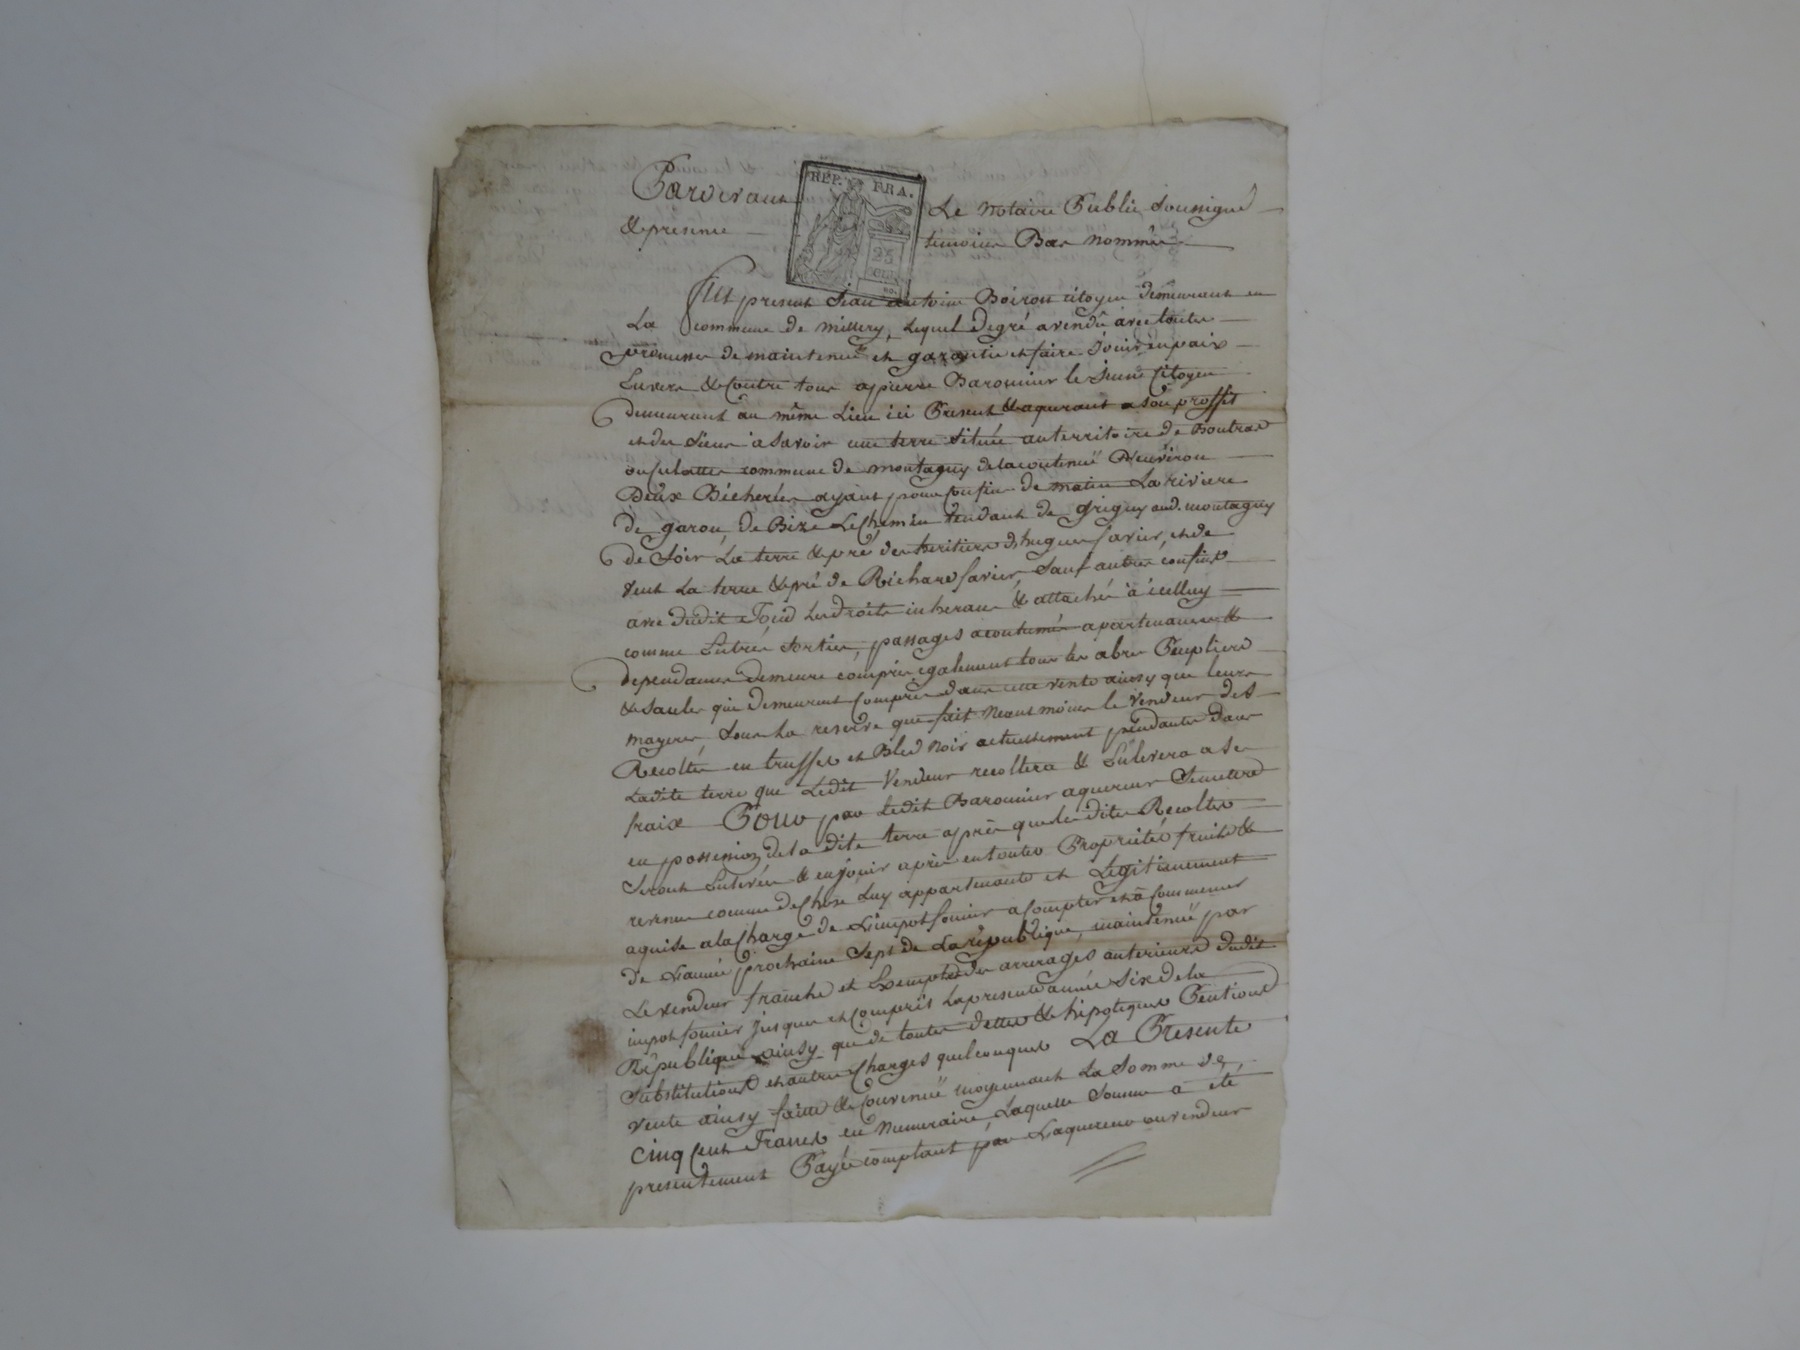 Pardevant Le Notaire Public Soussigné
REP. FRA.
25
CEN.
& presence temoins Bas nommés
fut present Jean antoine Boiron citoyen demeurant en
La commune de millery, Lequel degré a vendû avec toutes
promesses de maintenuë et garantie et faire Jouir en paix
Envers & Contre tous a pierre Barounier le Jeune Citoyen
demeurant au même Lieu ici Present & aquerant a son proffit
et des siens a savoir une terre située au territoire de Boutras
commune de montagny de la contenuë D'environ
Deux Bécherées ayant pour Confin de matin La riviere
de garon, de Bize Le Chemin tendant de grigny aud. montagny
de Soir La terre & pré des heritiers d'hugues favier, et de
Vent La terre & pré de Richard favier, Sauf autres confins
avec dudit Fond Les droits inherans & attachés à icelluy
comme Entrées Sorties, passages acoutumés apartenances &
dependances demeure compris également tous les abres Peupliers
& Saules qui demeurent Compris dans cette vente ainsy que leurs
mayeres, Sous La reserve que fait Neantmoins le Vendeur des
Recoltes en truffes et Bled Noir actuellement pendantes dans
Ladite terre que Ledit Vendeur recoltera & Enlevera a Ses
fraix Pour par Ledit Barounier aquereur Se mettre
en possession de la dite terre après que les dites Recoltes
Seront Enlevées & en jouir après en toutes Proprietés fruits &
revenus comme de Chose Luy appartenante et Légitimement
aquise a la Charge de L'impot foncier a Compter et à Commencer
de L'année prochaine Sept de La république, maintenuë par
Le vendeur franche et Exempte des arrerages anterieurs dudit
impot foncier jusques et Compris La presente année Six de la
République ainsy que de toutes dettes & hipoteques Pentions
Substitutions et autres Charges quelconques La Presente
vente ainsy faitte & Convenuë moyennant La Somme de
Cinq Cent Francs en Numeraire, Laquelle Somme a été
presentement Payée comptant par L'aquereur au vendeur